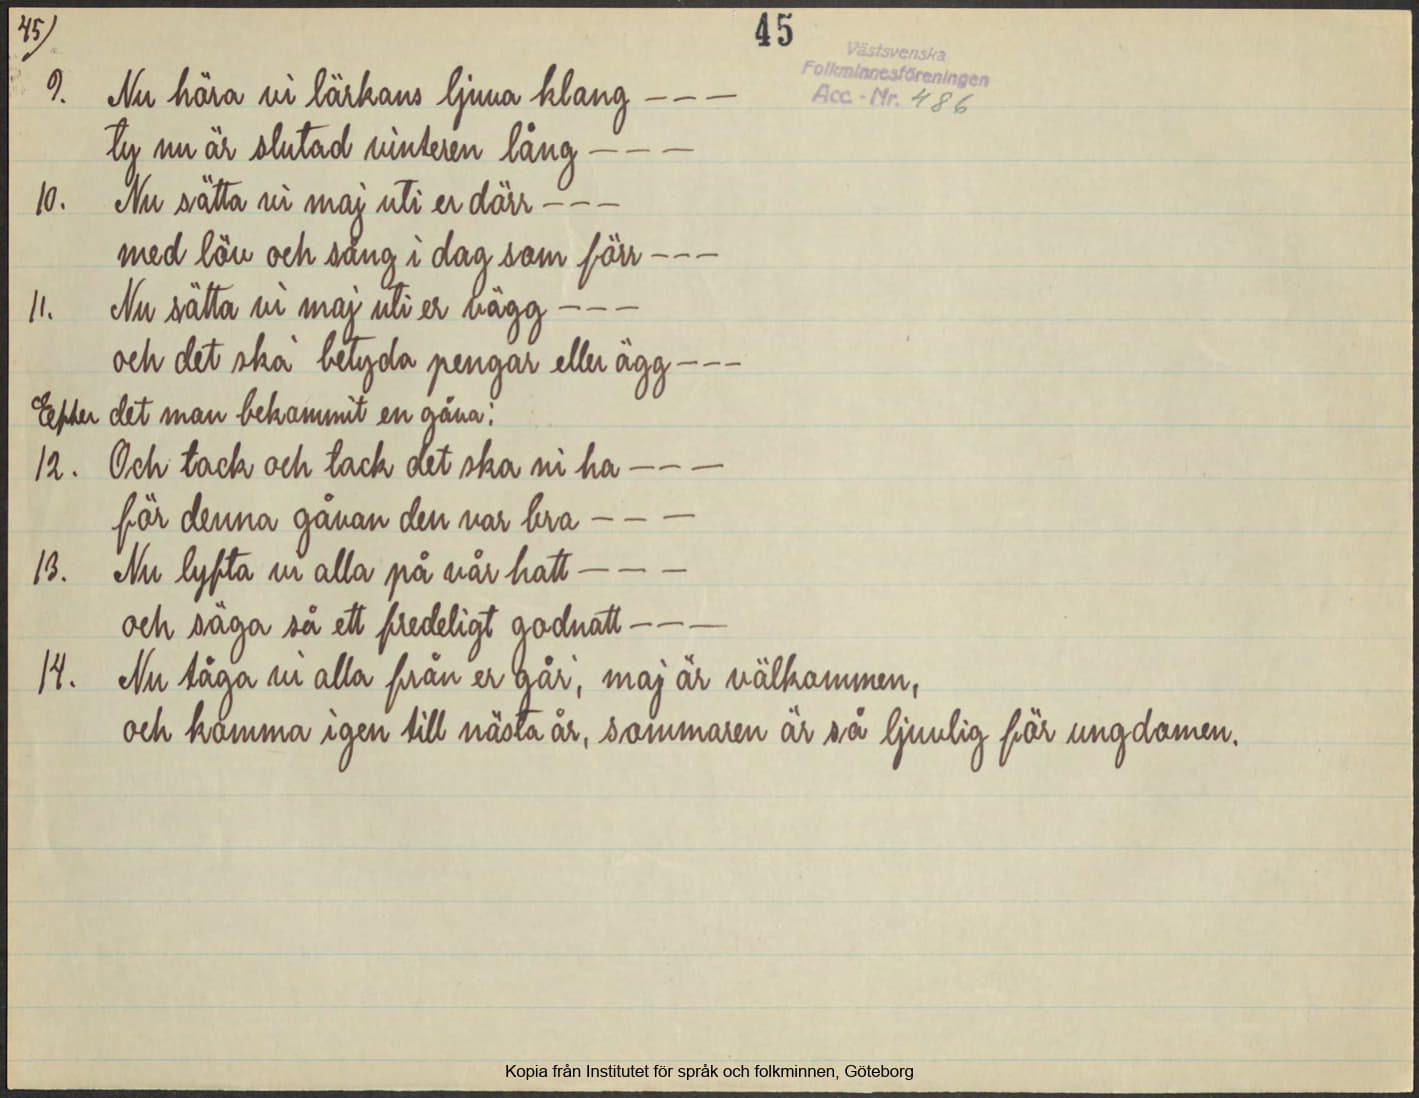 45)
45
Västsvenska
Folkminnesföreningen
Acc.-Nr. 486
9. Nu höra vi lärkans ljuva klang – – –
ty nu är slutad vinteren lång – – –
10. Nu sätta vi maj uti er dörr – – –
med löv och sång i dag som förr – – –
11. Nu sätta vi maj uti er vägg – – –
och det ska' betyda pengar eller ägg – – –
Eefter det man bekommit en gåva:
12. Och tack och tack det ska ni ha – – –
för denna gåvan den var bra – – –
13. Nu lyfta vi alla på vår hatt – – –
och säga så ett fredeligt godnatt – – –
14. Nu tåga vi alla från er går', maj är välkommen,
och komma igen till nästa år, sommaren är så ljuvlig för ungdomen.
Kopia från Institutet för språk och folkminnen, Göteborg